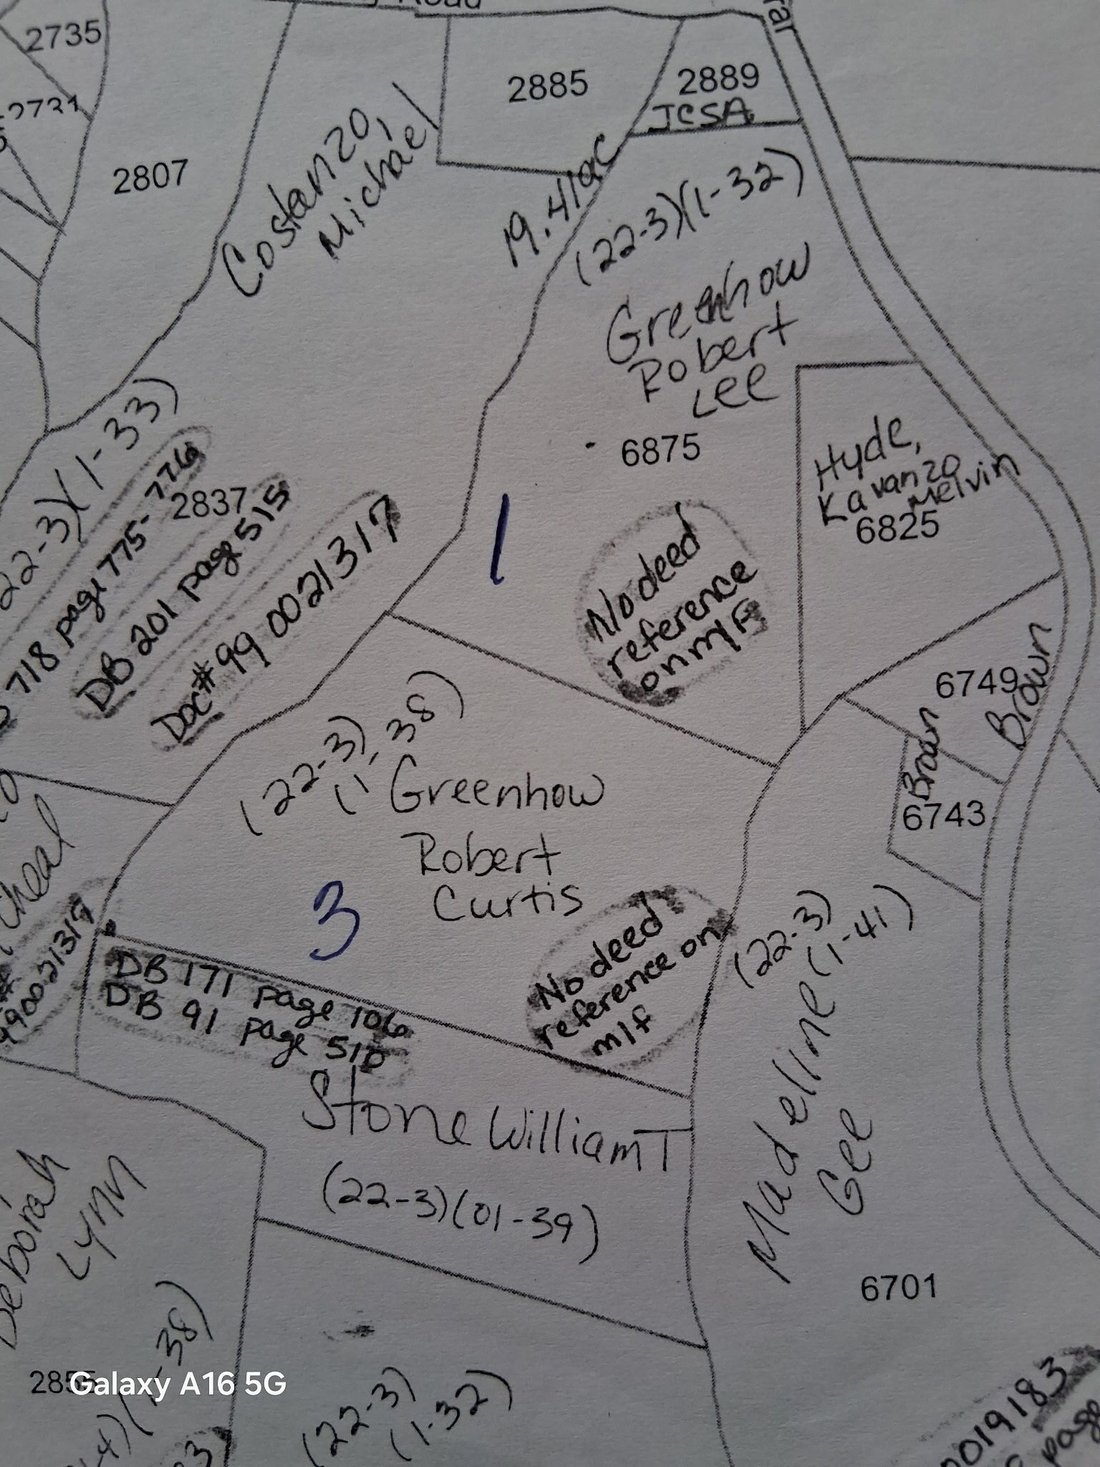 Road
2735
2731
2807
2885
2889
JCSA
Costanzo,
Michael
19.41ac
(22-3)(1-32)
Greenhow
Robert
Lee
6875
Hyde,
Kavanzo
Melvin
6825
22-3)(1-33)
718 page 775-776
2837
DB 201 page 515
Doc# 99 0021317
1
No deed
reference
on m/F
6749
Brown
Brown
6743
(22-3)
(1-38)
Greenhow
Robert
Curtis
3
No deed
reference on
m/f
cheal
990021317
DB 171 page 106
DB 91 page 510
Stone William T
(22-3)(01-39)
(22-3)
(1-41)
Madeline
Gee
6701
Deborah
Lynn
-4)(1-38)
Galaxy A16 5G
(22-3)
(1-32)
0019183
page